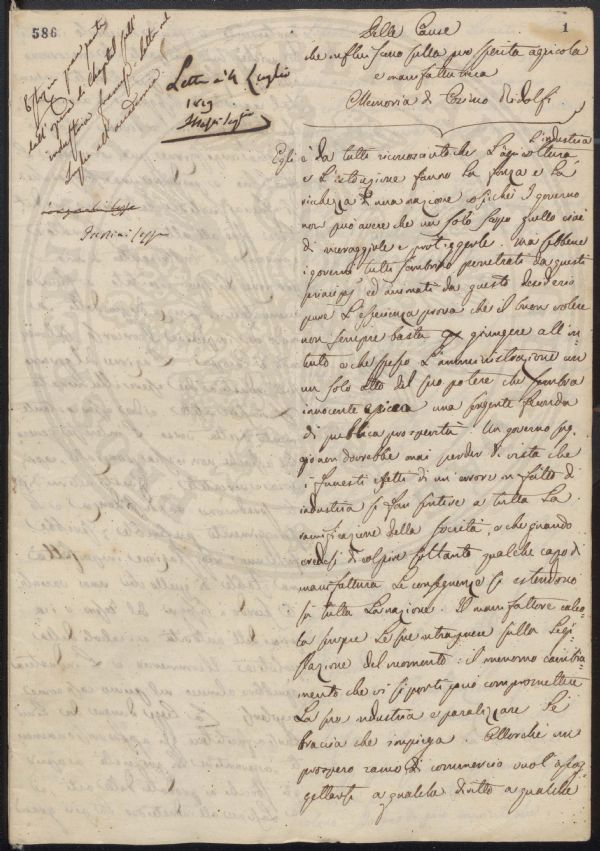 586
1
Delle Cause
che influiscono sulla prosperità agricola
e manifatturiera
Memoria di Cosimo Ridolfi
Letta a' 4 Luglio
1819
dell' opera di Chaptal sull'
industria francese letta nel
Luglio all' accademia
L'industria
Egli è da tutti riconosciuto che L'agricoltura
e L'istruzione fanno La forza e La
richezza d'una nazione osichè I governo
non può avere che un solo scopo quello cioè
di incoraggirle e proteggerle. Ma sebbene
i governi tutti sembrino penetrati da questi
principj ed animati da questo desiderio
pure L'esperienza prova che il buon volere
non sempre basta per giungere all' in-
tento e che spesso L'amministrazione con
un solo atto del suo potere che sembra
innocente una sorgente feconda
di pubblica prosperità. Un governo
non dovrebbe mai perder di vista che
i funesti effetti di un' errore in fatto di
industria si fan sentire a tutta La
ramificazione della Società, e che quando
credesi di colpir soltanto qualche capo di
manifattura Le conseguenze si estendono
su tutta La nazione. Il manifattore calco-
la sempre Le sue intraprese sulla Legi-
slazione del momento: il menomo cambia-
mento che vi si porti può compromettere
La sua industria e paralizzare Le
braccia che impiega. Allorchè un
prospero ramo di commercio vuol assog-
gettarsi a qualche diritto a qualche